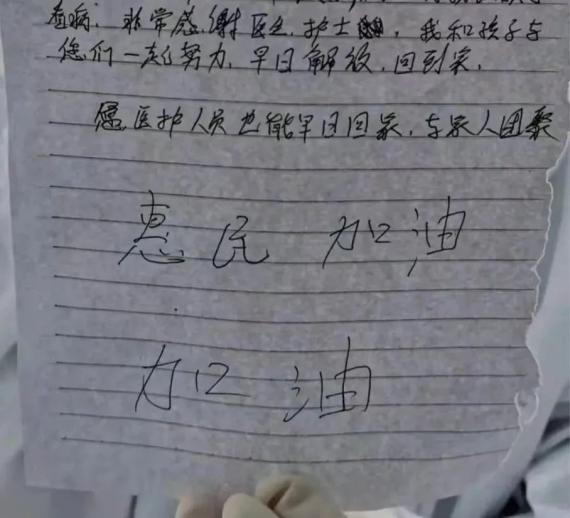 查病. 非常感谢医生, 护士, 我和孩子与
您们一起努力, 早日解放, 回到家.
愿医护人员也能早日回家, 与家人团聚
惠民 加油
加油